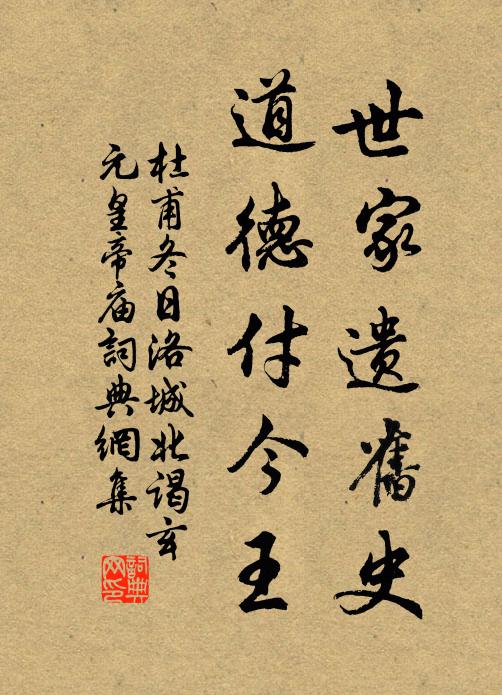 世家遺舊史
道德付今王
杜甫冬日洛城北謁玄
元皇帝庙詞典網集
詞典网印